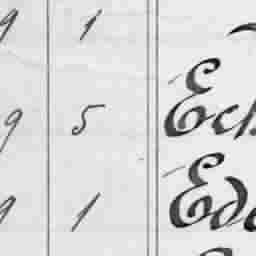 9 1
9 5 Ech
9 1 Ede